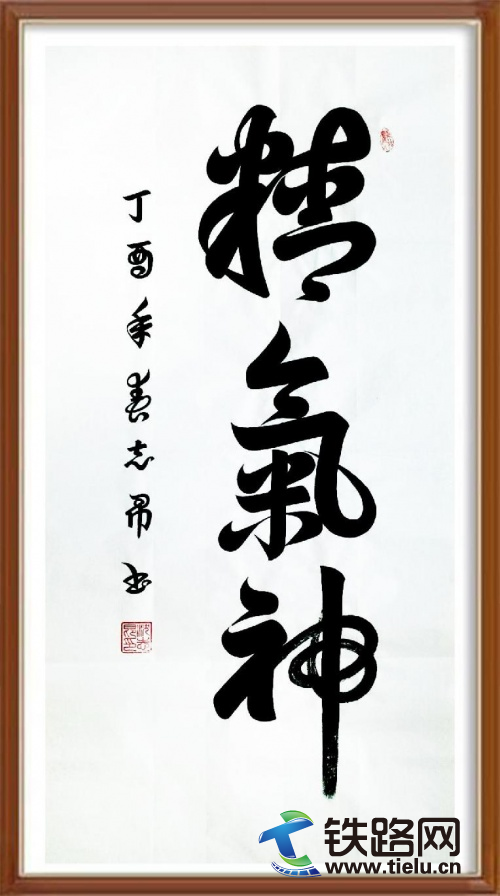 精氣神
丁酉年春志昂书
铁路网
www.tielu.cn